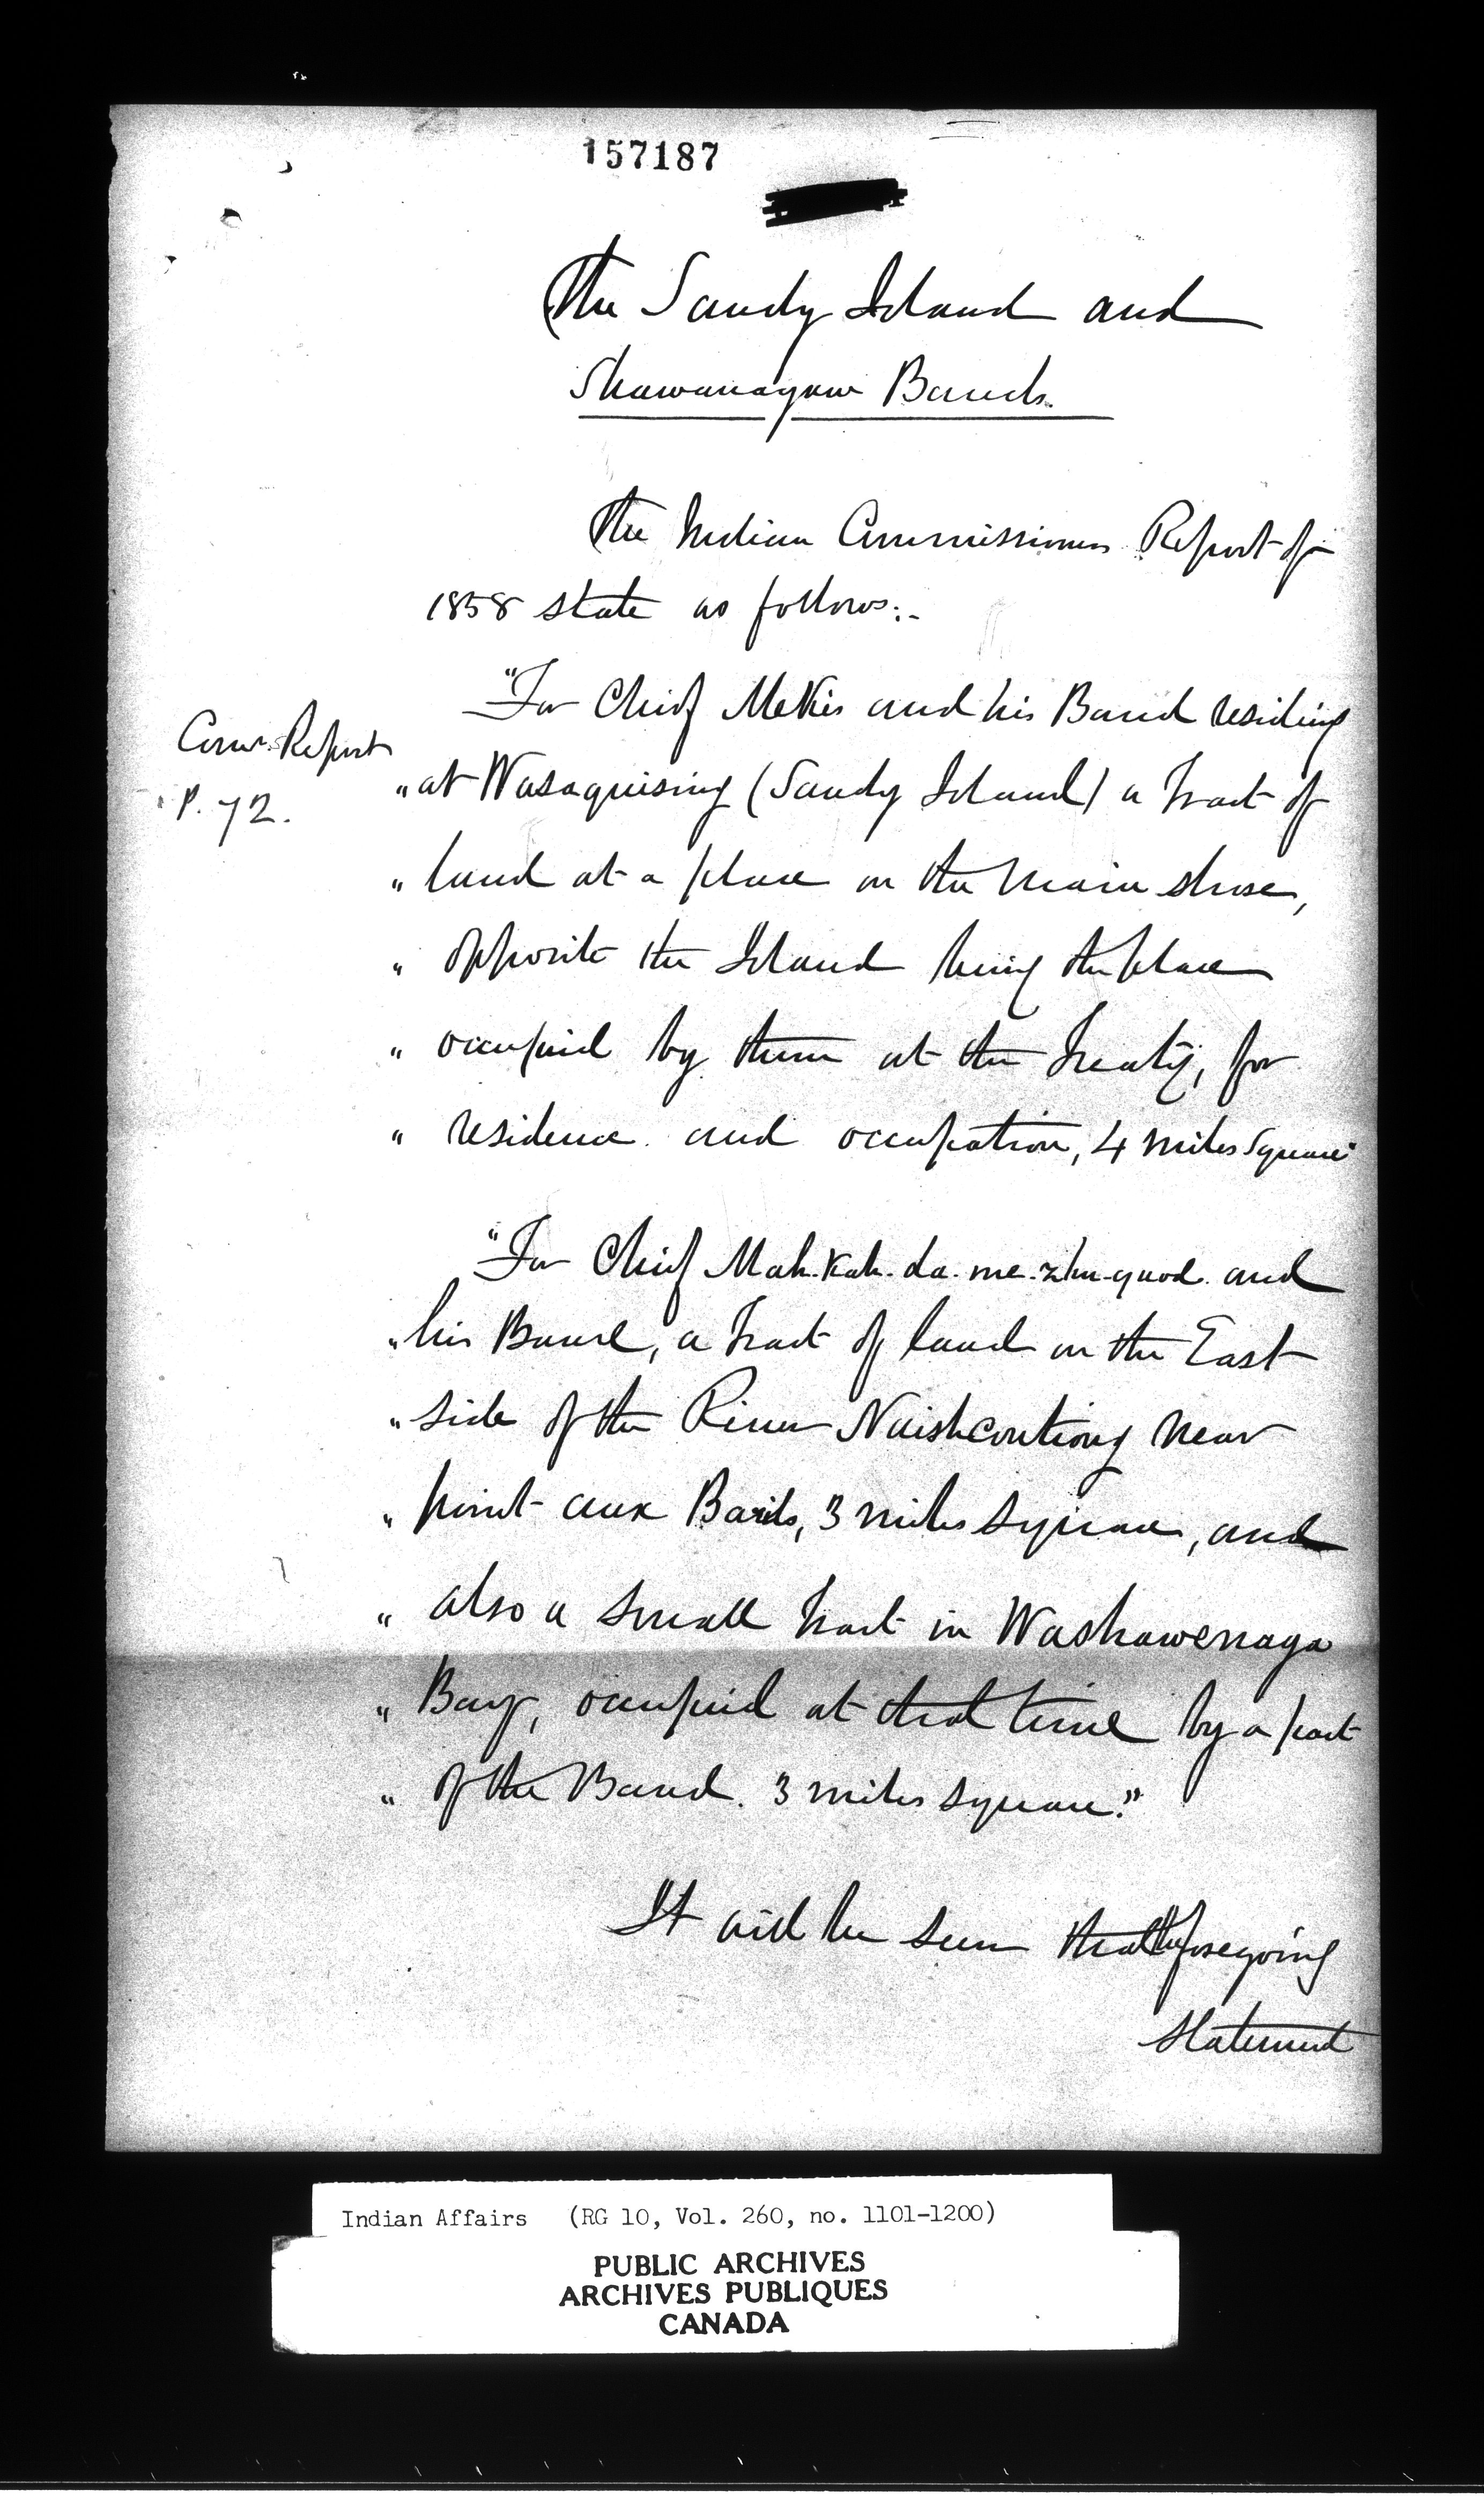 157187
The Sandy Island and
Shawanagaw Bands.
The Indian Commissioners Report of
1858 state as follows:-
"For Chief Mekis and his Band residing
Comr. Report
P. 72.
" at Wasaquising (Sandy Island) a Tract of
" land at a place on the Main shore,
" opposite the Island being the place
" occupied by them at the Treaty, for
" residence and occupation, 4 miles Square"
"For Chief Mah-Kah-da-me-zhu-quod and
" his Band, a Tract of land on the East
" side of the River Naishcoutiong near
" point aux Barils, 3 miles square, and
" also a small Tract in Washawenaga
" Bay, occupied at that time by a part
" of the Band. 3 miles square."
It will be seen that the foregoing
statement
Indian Affairs (RG 10, Vol. 260, no. 1101-1200)
PUBLIC ARCHIVES
ARCHIVES PUBLIQUES
CANADA